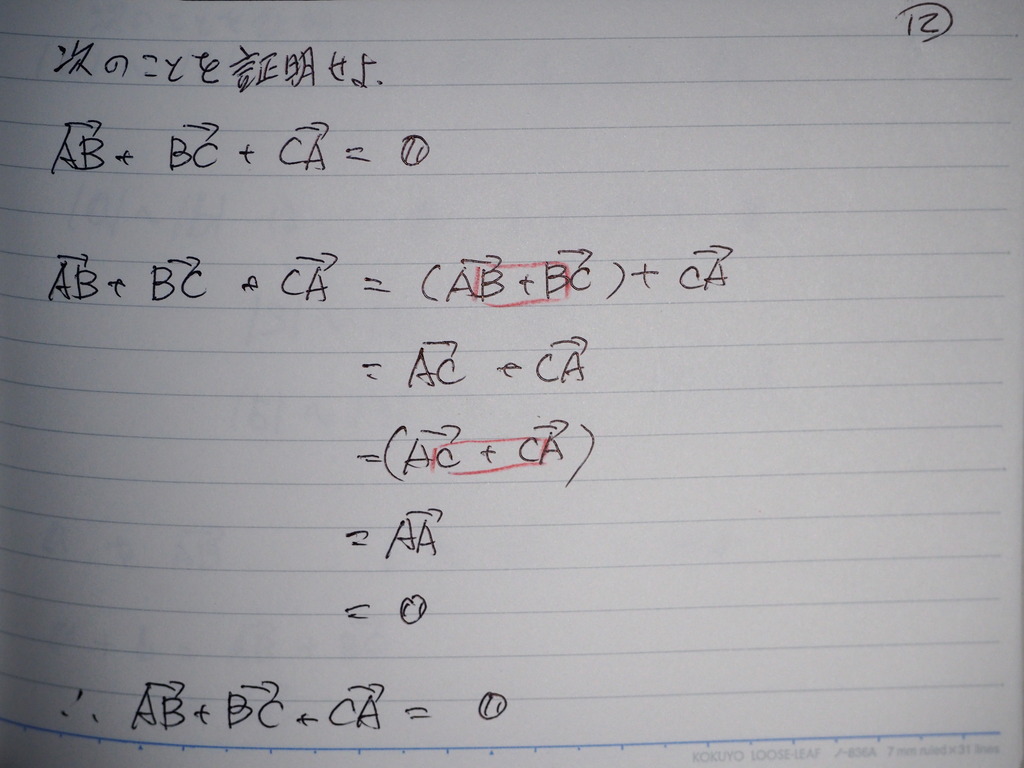 ⑫
次のことを証明せよ.
$\overrightarrow{AB} + \overrightarrow{BC} + \overrightarrow{CA} = \mathbb{0}$
$\overrightarrow{AB} + \overrightarrow{BC} + \overrightarrow{CA} = (\overrightarrow{AB} + \overrightarrow{BC}) + \overrightarrow{CA}$
$= \overrightarrow{AC} + \overrightarrow{CA}$
$= (\overrightarrow{AC} + \overrightarrow{CA})$
$= \overrightarrow{AA}$
$= \mathbb{0}$
$\therefore \overrightarrow{AB} + \overrightarrow{BC} + \overrightarrow{CA} = \mathbb{0}$
KOKUYO LOOSE-LEAF ノ-836A 7 mm ruled×31 lines